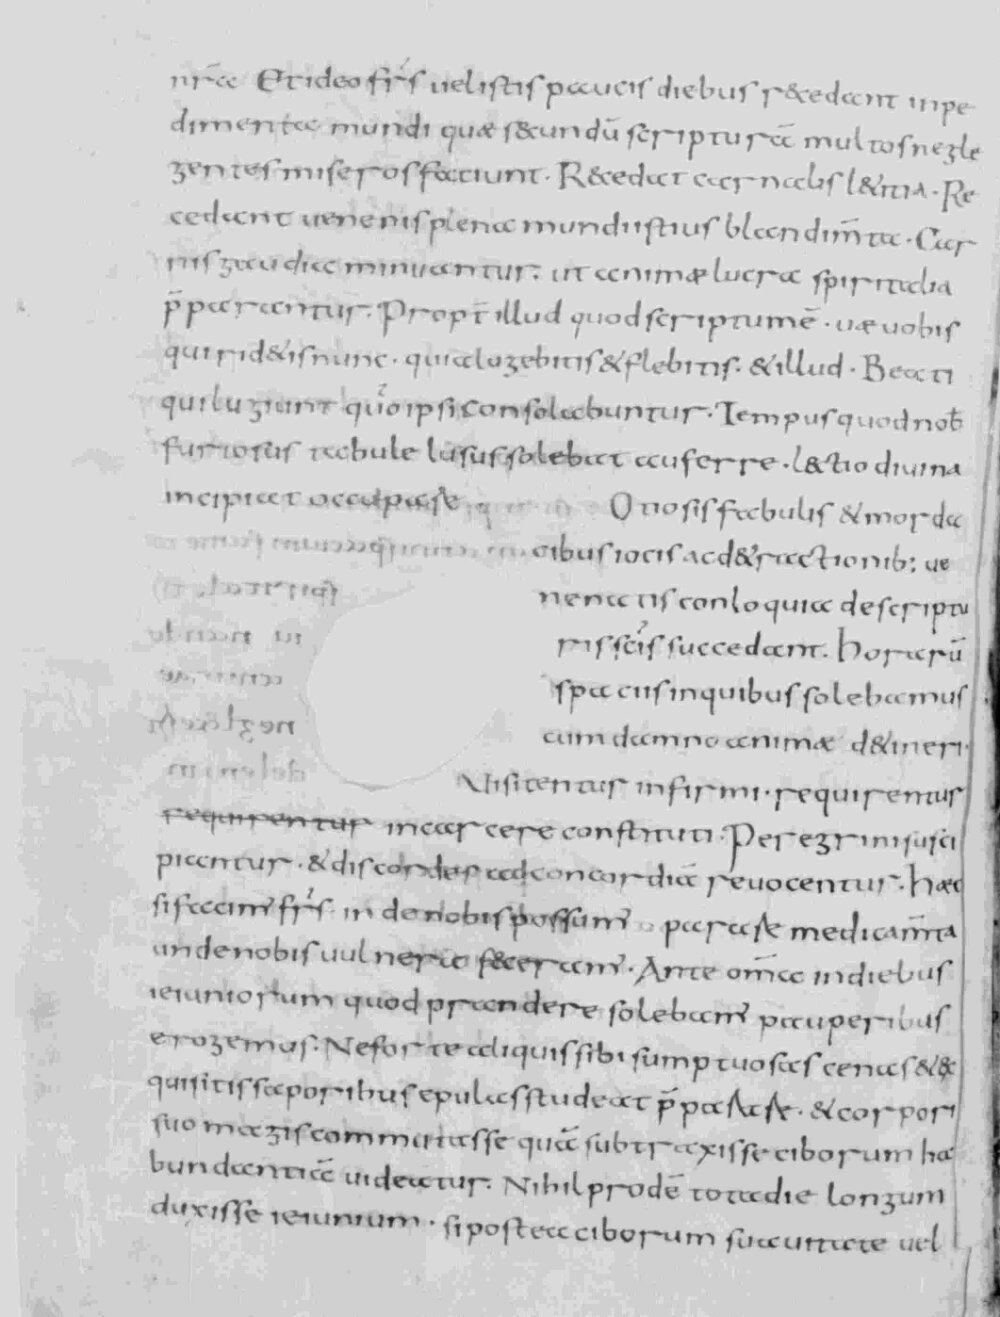 nr̄a Et ideo fr̄s uel istis paucis diebus r&edant inpe
dimenta mundi quæ s&undū scripturā multos negle
gentes miseros faciunt. R&edat carnalis l&itia. Re
cedant uenenis plena mundi istius blandim̄ta. Car
nis gaudia minuantur. ut animæ lucra spiritalia
p̄parantur. Propt̄ illud quod scriptum ē. uæ uobis
qui rid&is nunc. quia lugebitis & flebitis. & illud. Beati
qui lugiunt quō ipsi consolabuntur. Tempus quod nob̄
furiosus tabule lusus solebat auferre. l&tio diuina
incipiat occupase Otiosis fabulis & morda
cibus iocis ac d&ractionib; ue
nenatis conloquia de scriptu
ris scīs succedant. Horarū
spaciis in quibus solebamus
cum damno animæ d&ineri.
Uisitentur infirmi. requirentur
requirentur in carcere constituti. Peregrini susci
piantur. & discordes ad concordiā reuocentur. Hæc
si faciam' fr̄s. inde nobis possum' parase medicam̄ta
unde nobis uulnera feceram'. Ante om̄a in diebus
ieiuniorum quod prandere solebam' pauperibus
erogemus. Ne forte aliquis sibi sumptuosas cenas & &
quisitis saporibus epulas studeat p̄parase. & corpori
suo magis commutasse quā subtraxisse ciborum ha
bundantiā uideatur. Nihil prodē tota die longum
duxisse ieiunium. si postea ciborum suauitate uel